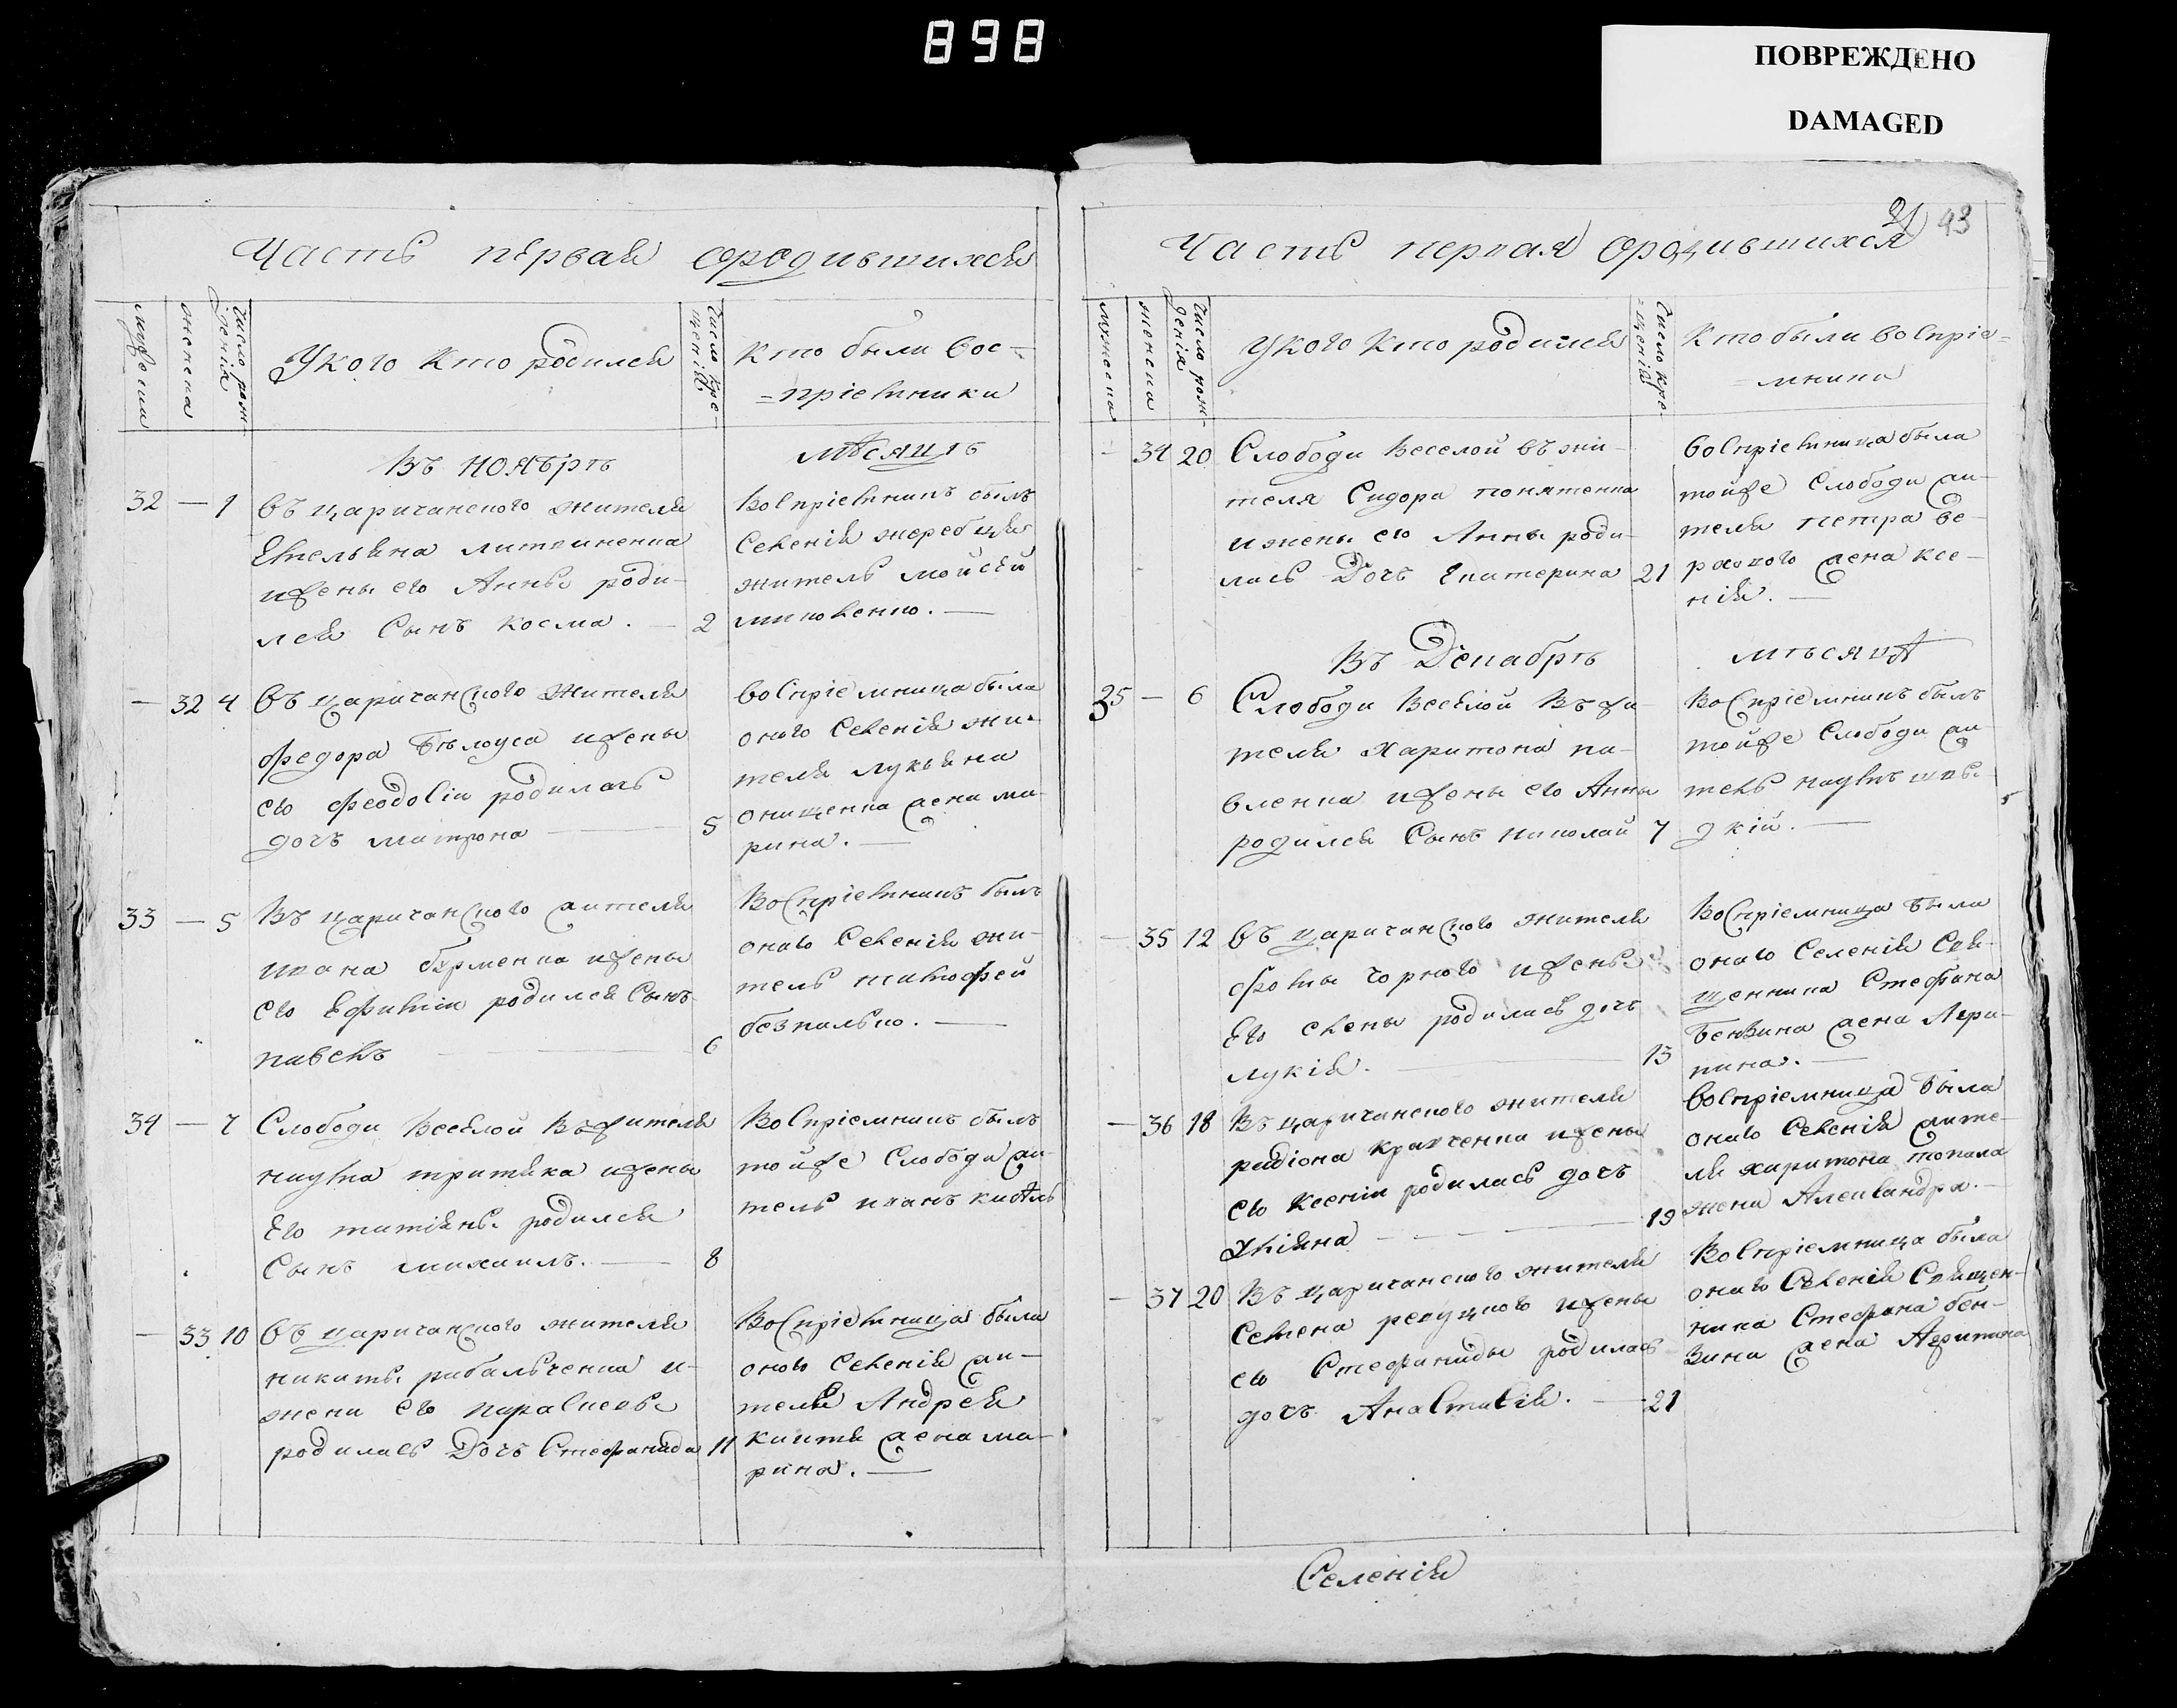 898
ПОВРЕЖДЕНО
DAMAGED
Часть первая ородившихся
мужеска
женска
Число рож-
денія
Укого Кто родился
Число кре-
щенія
Кто были вос-
=пріемники
Въ ноябрѣ
мѣсяцѣ
32 — 1 въ царичанского жителя
Емельяна литвиненка
ижены его Анны роди-
лся Сынъ Косма. — 2
Воспріемникъ былъ
Селенія жеребца
житель мойсей
миновенко. —
— 32 4 въ царичанского жителя
федора бѣлоуса ижены
его феодосіи родилась
дочъ матрона — 5
воспріемница была
оного Селенія жи-
теля лукьяна
онищенка жена ма-
рина. —
33 — 5 Въ царичанского жителя
ивана бурменка ижены
его Ефиміи родился Сынъ
павелъ — 6
Воспріемникъ былъ
оного Селенія жи-
тель тимофей
безпалько. —
34 — 7 Слободи Веселой Въжителя
наума тритяка ижены
Его татіяны родился
Сынъ михаилъ. — 8
Воспріемникъ былъ
тойже Слободи жи-
тель иванъ
— 33 10 въ царичанского жителя
никиты рибальченка и-
жени его параскевы
родилась Дочъ Стефанида 11
Воспріемница была
оного Селенія жи-
теля Андрея
жена ма-
рина. —
21 43
Часть первая ородившихся
мужеска
женска
Число рож-
денія
Укого Кто родился
Число кре-
щенія
Кто были воспріе-
=мники
- 34 20 Слободи Веселой въжи-
теля Сидора
ижены его Анны роди-
лась Дочъ Екатерина 21
воспріемница была
тойже Слободи жи-
теля петра ве-
ракого жена ксе-
нія. —
Въ Декабрѣ
мѣсяцѣ
35 — 6 Слободи Веселой Въжи-
теля Харитона па-
вленка ижены его Анны
родился Сынъ николай 7
Воспріемникъ былъ
тойже Слободи жи-
тель наумъ шве-
дкій. —
— 35 12 въ царичанского жителя
фомы чорного ижены
Его елены родилась дочъ
лукія. — 13
Воспріемница была
оного Селенія Свя-
щенника Стефана
Бензина жена Агри-
пина. —
— 36 18 Въ царичанского жителя
радіона кравченка ижены
его Ксеніи родилась дочъ
Уліяна — 19
воспріемница была
оного Селенія жите-
ля харитона топала
жена Александра. —
— 37 20 Въ царичанского жителя
Семена ревуцкого ижены
его Стефаниды родилась
дочъ Анастасія. — 21
Воспріемница была
оного Селенія Священ-
ника Стефана бен-
зина жена Агрипина
Селенія